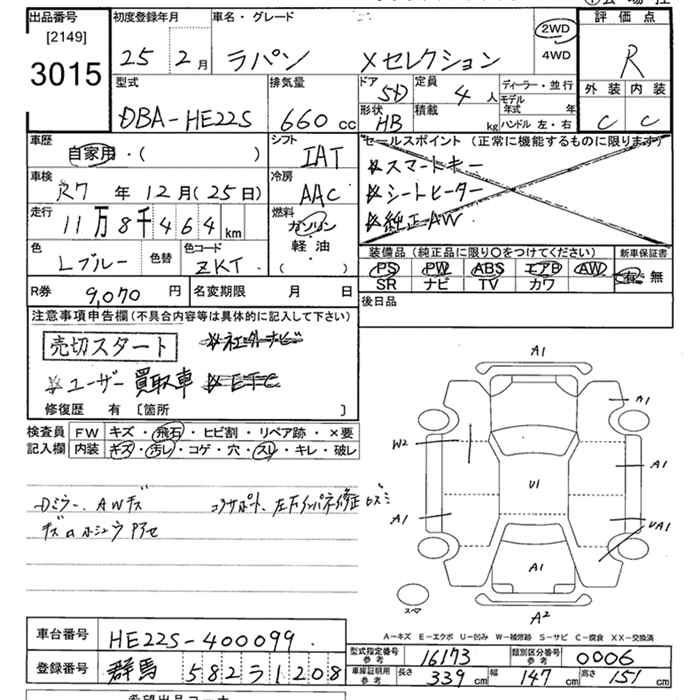 出品番号
[2149]
3015
初度登録年月
25 2月
車名・グレード
ラパン Xセレクション
2WD
4WD
評価点
R
外装 内装
C C
型式
DBA-HE22S
排気量
660 cc
ドア
5D
定員
4人
形状
HB
積載
kg
ディーラー・並行
モデル年式 年
ハンドル 左・右
車歴
自家用・( )
シフト
IAT
車検
R7年12月(25日)
冷房
AAC
走行
11万8千464km
燃料
ガソリン
軽・油
( )
色
Lブルー
色替
色コード
ZKT
セールスポイント(正常に機能するものに限ります)
※スマートキー
※シートヒーター
※純正AW
装備品(純正品に限り○をつけてください)
新車保証書
PS PW ABS エアB AW
SR ナビ TV カワ
有・無
R券
9,070円
名変期限 月 日
後日品
注意事項申告欄(不具合内容等は具体的に記入して下さい)
売切スタート
※社外ナビ
※ユーザー買取車
※ETC
修復歴 有[箇所 ]
検査員記入欄
FW キズ・飛石・ヒビ割・リペア跡・×要
内装 キズ・汚レ・コゲ・穴・スレ・キレ・破レ
Dミラー、AWキズ
コアサポート、左Fインパネ修正
A1
A1
W2
A1
U1
A1
UA1
A1
A2
スペア
A-キズ E-エクボ U-凹み W-補修跡 S-サビ C-腐食 XX-交換済
車台番号
HE22S-400099
登録番号
群馬 582ラ1208
型式指定番号
参考
16173
類別区分番号
参考
0006
車庫証明用
参考
長さ 339cm
幅 147cm
高さ 151cm